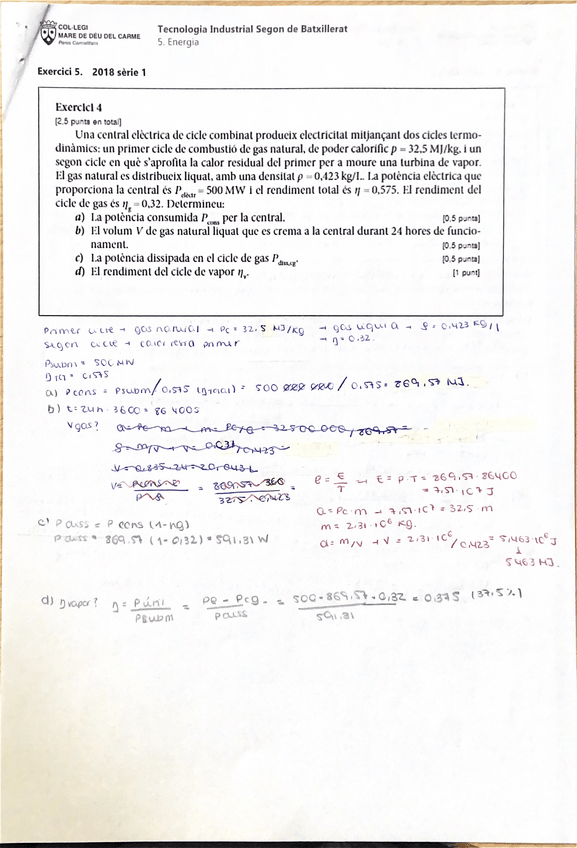 COL·LEGI
MARE DE DÉU DEL CARME
Pares Carmelites
Tecnologia Industrial Segon de Batxillerat
5. Energia
Exercici 5. 2018 sèrie 1
Exercici 4
[2,5 punts en total]
Una central elèctrica de cicle combinat produeix electricitat mitjançant dos cicles termo-
dinàmics: un primer cicle de combustió de gas natural, de poder calorífic p = 32,5 MJ/kg, i un
segon cicle en què s'aprofita la calor residual del primer per a moure una turbina de vapor.
El gas natural es distribueix liquat, amb una densitat ρ = 0,423 kg/L. La potència elèctrica que
proporciona la central és Pelèctr = 500 MW i el rendiment total és η = 0,575. El rendiment del
cicle de gas és ηg = 0,32. Determineu:
a) La potència consumida Pcons per la central. [0,5 punts]
b) El volum V de gas natural liquat que es crema a la central durant 24 hores de funcio-
nament. [0,5 punts]
c) La potència dissipada en el cicle de gas Pdiss,cg. [0,5 punts]
d) El rendiment del cicle de vapor ηv. [1 punt]
Primer cicle → gas natural → Pc = 32,5 MJ/kg → gas liquat → ρ = 0,423 kg/l
Segon cicle → calor primer → η = 0.32.
Psubm = 500 MW
= 0,575
a) Pcons = Psubm/0,575 = 500 / 0,575 = 869,57 MJ.
b) t = 24h · 3600 = 86400s
Vgas?
P = E/T → E = P·T = 869,57 · 86400
= 7,51·10^7 J
Q = Pc·m → 7,51·10^7 = 32,5 · m
m = 2,31·10^6 kg.
= m/V → V = 2,31·10^6/0,423 = 5,463·10^6 J
↓
5463 MJ.
c) Pdiss = Pcons (1-ηg)
Pdiss = 869.57 (1-0,32) = 591,31 W
d) η vapor? η = Púni/Psubm = Pe - Pcg/Pdiss = 500-869,57·0,32/591,31 = 0,375 (37,5%)